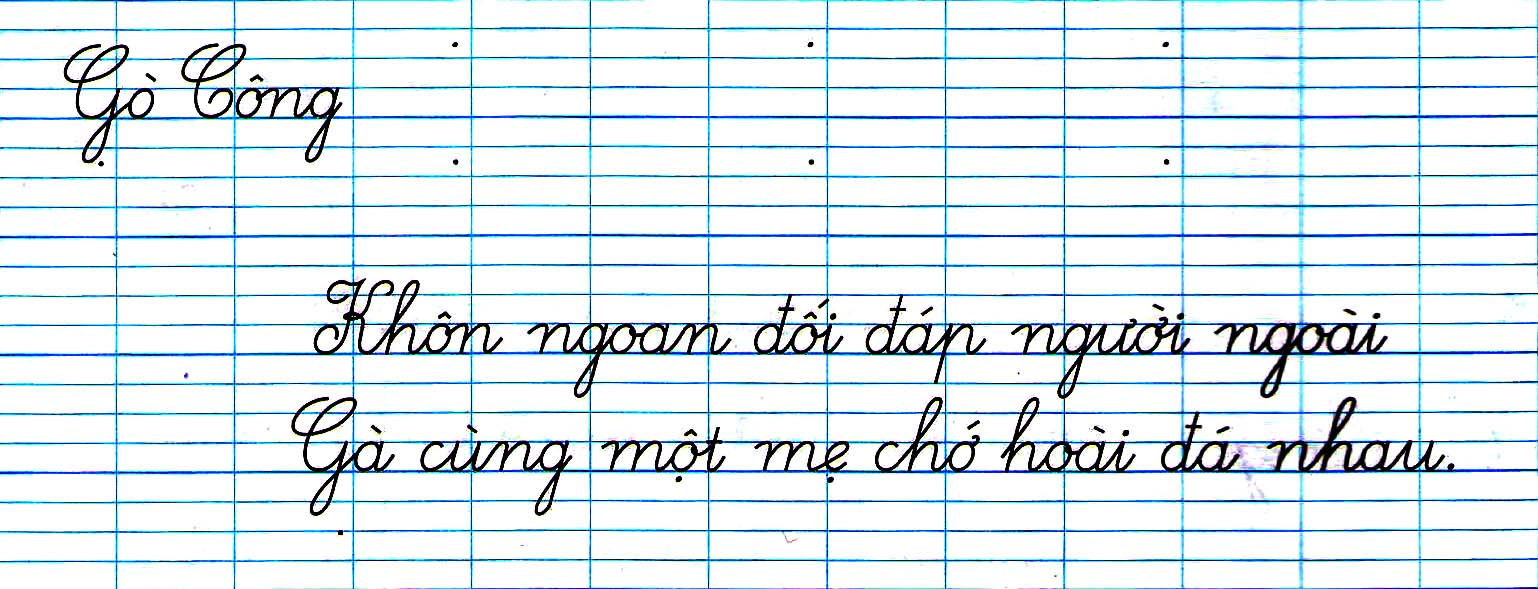 Gò Công
Khôn ngoan đối đáp người ngoài
Gà cùng một mẹ chớ hoài đá nhau.